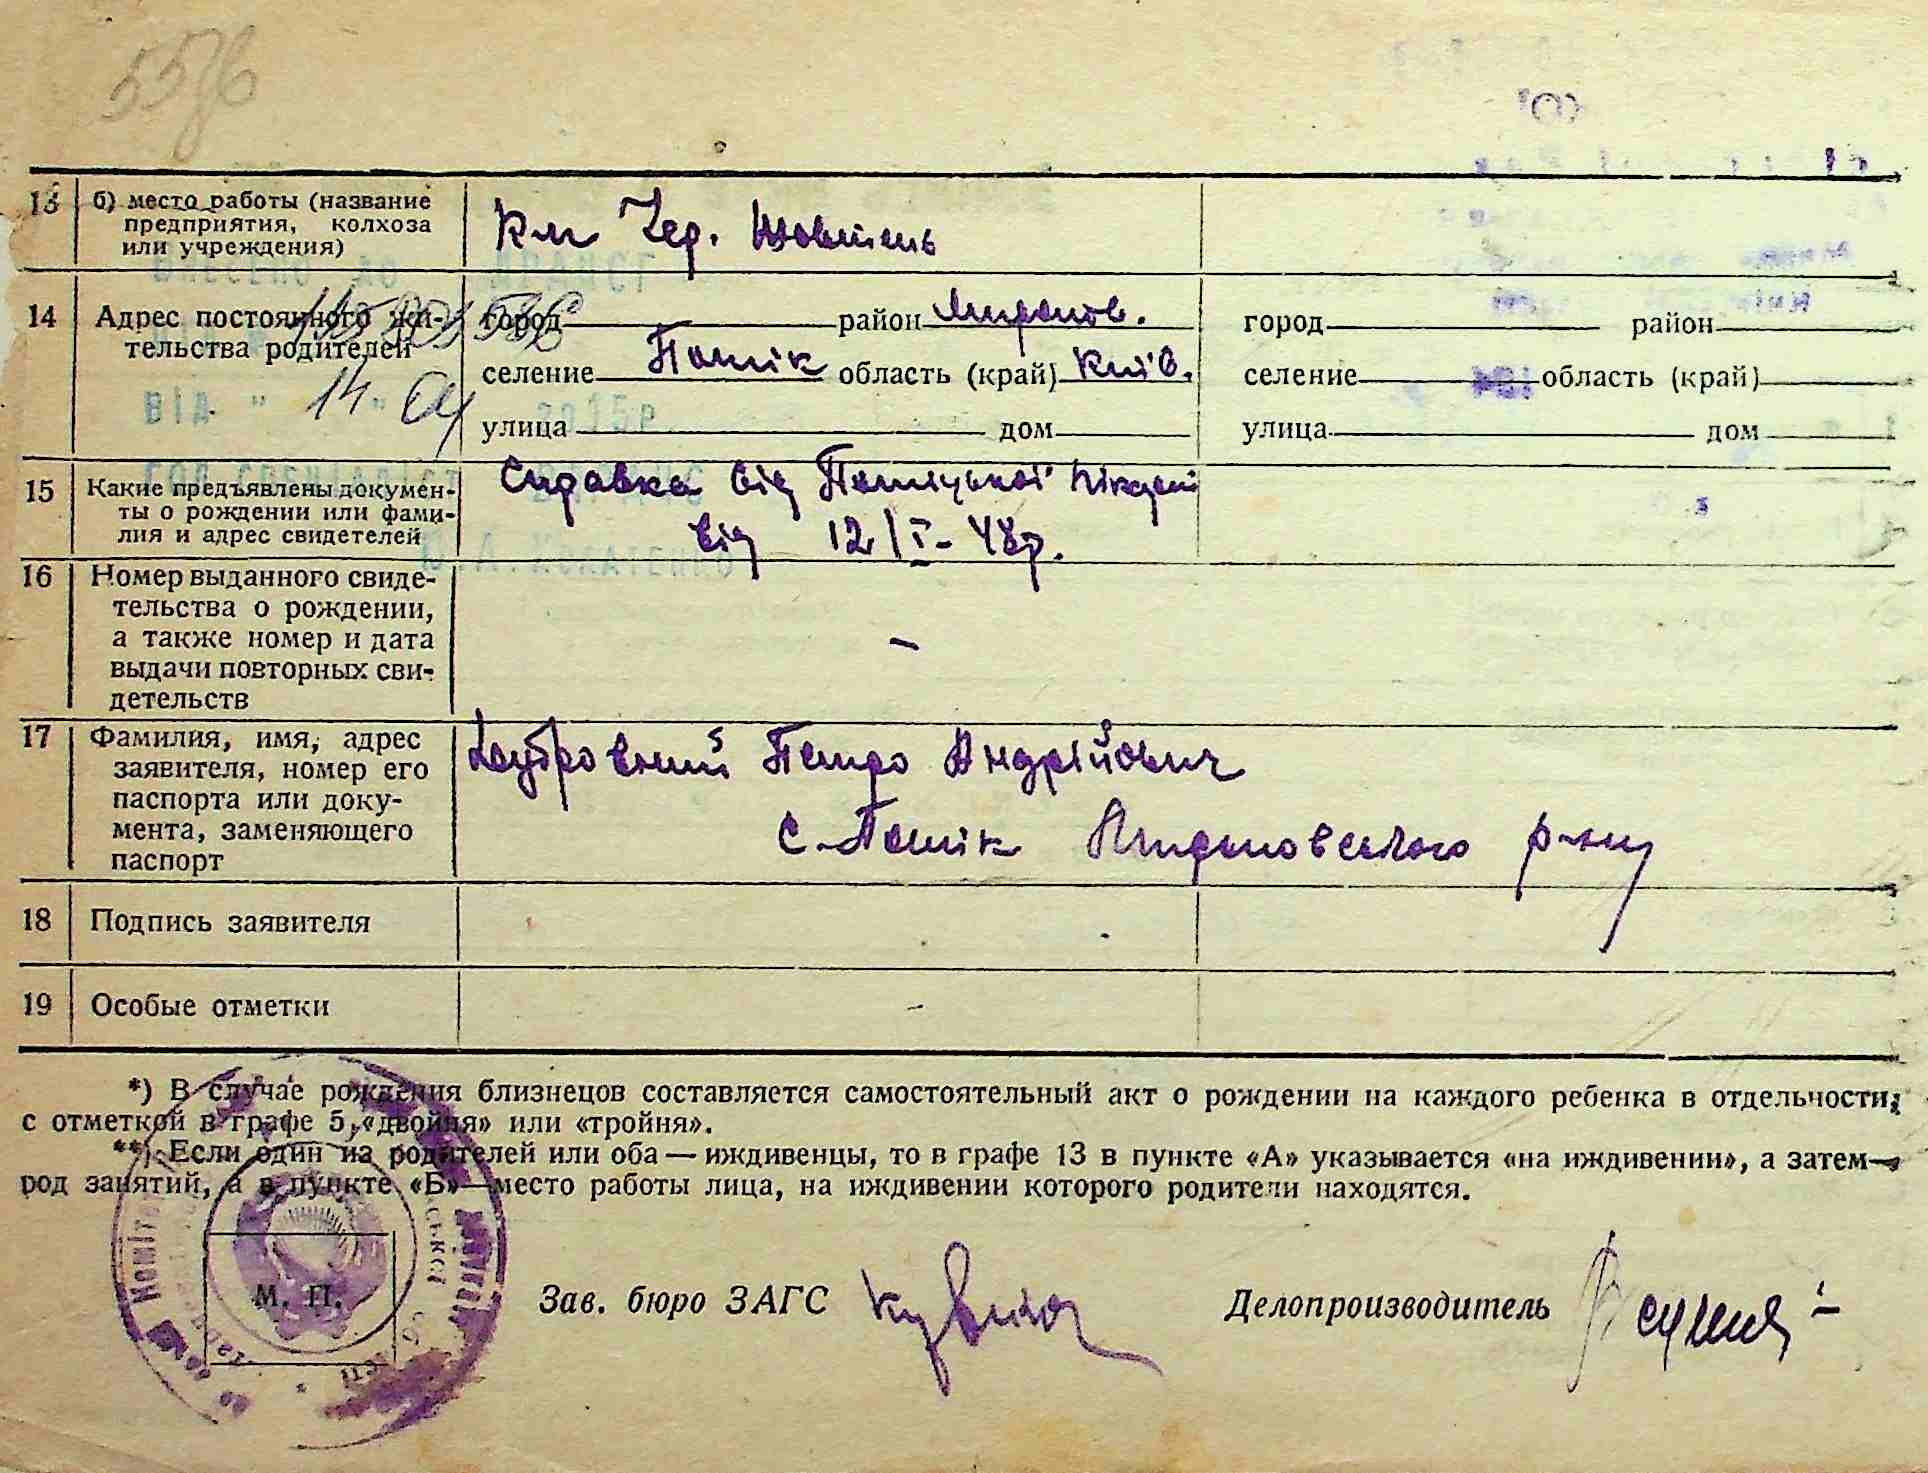 5576
13 б) место работы (название
предприятия, колхоза
или учреждения)
Кол Чер. Жовтень
14 Адрес постоянного жи-
тельства родителей
город район Миронів.
селение Потік область (край) Київ.
улица дом
город район
селение область (край)
улица дом
ВНЕСЕНО ДО ДРАЦСГ
ВІД " 14 " 04 2015р
15 Какие предъявлены докумен-
ты о рождении или фами-
лия и адрес свидетелей
Справка від Потіцької
від 12/I-48р.
16 Номер выданного свиде-
тельства о рождении,
а также номер и дата
выдачи повторных сви-
детельств
–
17 Фамилия, имя, адрес
заявителя, номер его
паспорта или доку-
мента, заменяющего
паспорт
Петро Андрійович
с. Потік Мироновського р-ну
18 Подпись заявителя
19 Особые отметки
–
*) В случае рождения близнецов составляется самостоятельный акт о рождении на каждого ребенка в отдельности,
с отметкой в графе 5, «двойня» или «тройня».
**) Если один из родителей или оба — иждивенцы, то в графе 13 в пункте «А» указывается «на иждивении», а затем—
род занятий, а в пункте «Б»—место работы лица, на иждивении которого родители находятся.
М. П.
Зав. бюро ЗАГС
Делопроизводитель